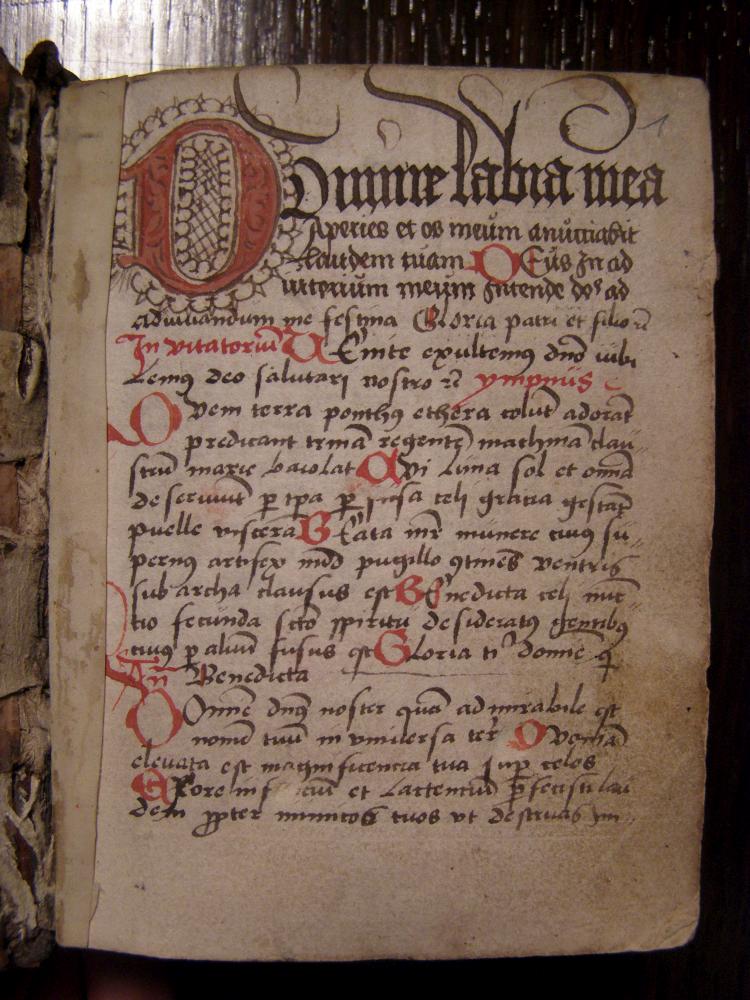 Domine labia mea
Aperies et os meum anunciabit
laudem tuam DEus In ad
iutorium meum Intende dos ad
adiuuandum me festina Gloria patri et filio
Inuitatoriū UEnite exultemus dno iubi
lemus deo salutari nostro ympnus
Quem terra ponthus ethera colūt adorāt
predicant trinā regentē machinā clau
strū marie baiolat CUi luna sol et omnia
deseruiūt p tpa p fusa celi gracia gestāt
puelle viscera BEata mr munere cuius su
pernus artifex mūd pugillo 9tinēs ventris
sub archa clausus est BEnedicta celi nūc
cio fecunda scto spiritu desideratus gentibus
cuius p aluū fusus est Gloria ti domine q
An Benedicta
DOmine dns noster quā admirabile est
nomē tuū in vniuersa ter Quoniā
eleuata est magnificencia tua sup celos
EX ore inf ciū et lactentiū pfecisti lau
dem ppter inimicos tuos vt destruas ini